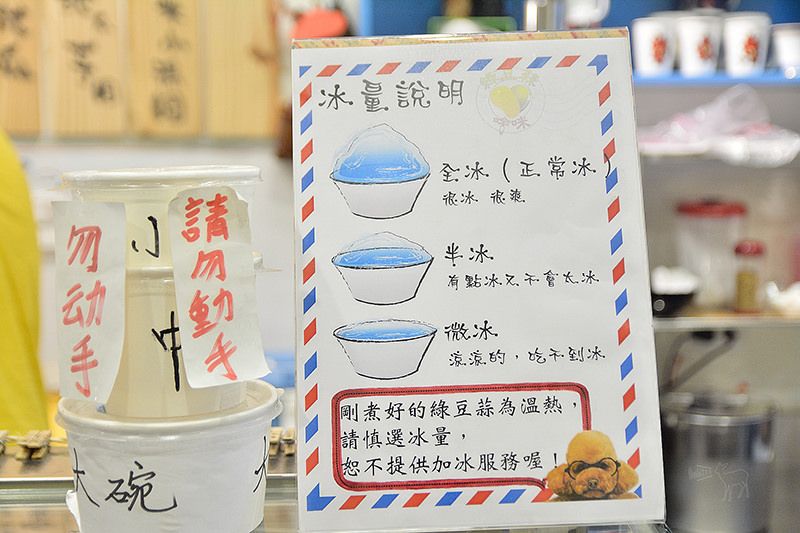 冰量說明
全冰（正常冰）
很冰 很爽
半冰
有點冰又不會太冰
微冰
涼涼的，吃不到冰
剛煮好的綠豆蒜為溫熱，
請慎選冰量，
恕不提供加冰服務喔！
勿动手
請勿動手
小
中
大碗